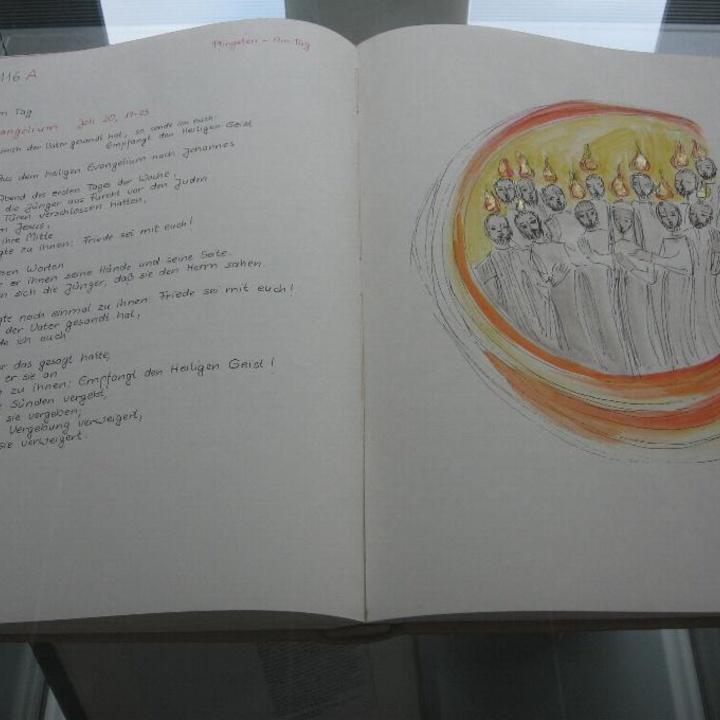 Pfingsten - Am Tag
116 A
m Tag
angelium Joh 20, 19-23
mich der Vater gesandt hat, so sende ich euch:
Empfangt den Heiligen Geist
us dem Heiligen Evangelium nach Johannes
bend des ersten Tages der Woche,
die Jünger aus Furcht vor den Juden
Türen verschlossen hatten,
m Jesus,
ihre Mitte
gte zu ihnen: Friede sei mit euch!
sen Worten
e er ihnen seine Hände und seine Seite.
n sich die Jünger, daß sie den Herrn sahen.
gte noch einmal zu ihnen: Friede sei mit euch!
der Vater gesandt hat,
de ich euch
er das gesagt hatte,
er sie an
zu ihnen: Empfangt den Heiligen Geist!
Sünden vergebt,
sie vergeben;
Vergebung verweigert,
sie verweigert.